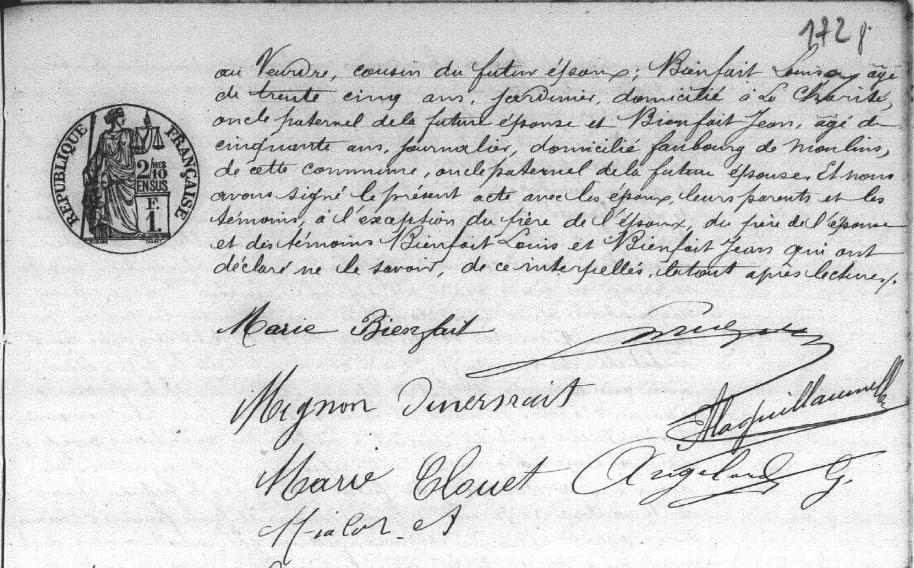 172
au Veurdre, cousin du futur époux; Bienfait Louis, âgé
de trente cinq ans, jardinier, domicilié à La Charité,
oncle paternel de la future épouse et Bienfait Jean, âgé de
cinquante ans, journalier, domicilié faubourg de Moulins,
de cette commune, oncle paternel de la future épouse. Et nous
avons signé le présent acte avec les époux, leurs parents et les
témoins, à l'exception du père de l'époux, du père de l'épouse
et des témoins Bienfait Louis et Bienfait Jean qui ont
déclaré ne le savoir, de ce interpellés, le tout après lecture.
RÉPUBLIQUE FRANÇAISE
2/10
EN SUS
1 F.
Marie Bienfait
Mignon
Marie Clouet
G.